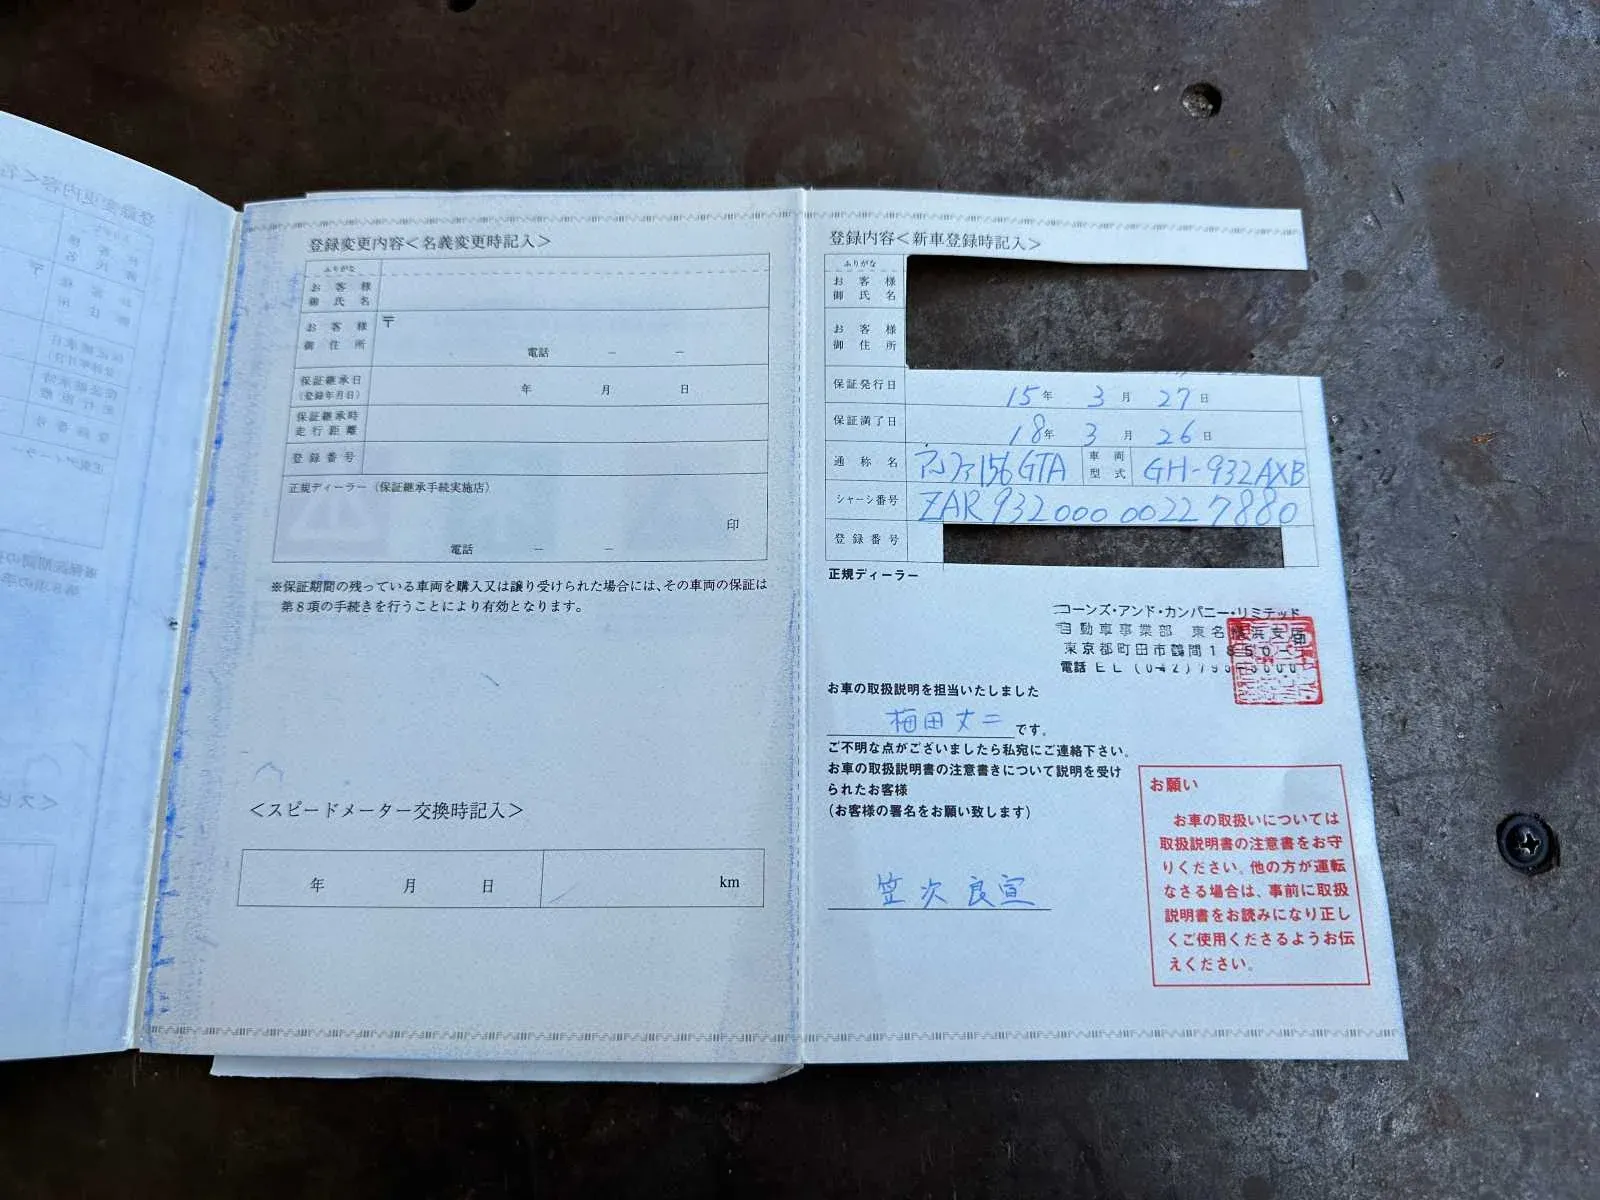 登録変更内容＜名義変更時記入＞
ふりがな
お客様
御氏名
お客様
御住所
〒
電話 － －
保証継承日
(登録年月日)
年 月 日
保証継承時
走行距離
登録番号
正規ディーラー（保証継承手続実施店）
印
電話 － －
※保証期間の残っている車両を購入又は譲り受けられた場合には、その車両の保証は
第8項の手続きを行うことにより有効となります。
＜スピードメーター交換時記入＞
年 月 日 km
登録内容＜新車登録時記入＞
ふりがな
お客様
御氏名
お客様
御住所
保証発行日 15年 3月 27日
保証満了日 18年 3月 26日
通称名 アルファ156GTA 車両型式 GH-932AXB
シャーシ番号 ZAR93200000227880
登録番号
正規ディーラー
コーンズ・アンド・カンパニー・リミテッド
自動車事業部 東名横浜支店
東京都町田市鶴間1850-
電話 EL (042)795-
お車の取扱説明を担当いたしました
梅田丈二です。
ご不明な点がございましたら私宛にご連絡下さい。
お車の取扱説明書の注意書きについて説明を受け
られたお客様
(お客様の署名をお願い致します)
笠次良宣
お願い
お車の取扱いについては
取扱説明書の注意書をお守
りください。他の方が運転
なさる場合は、事前に取扱
説明書をお読みになり正し
くご使用くださるようお伝
えください。